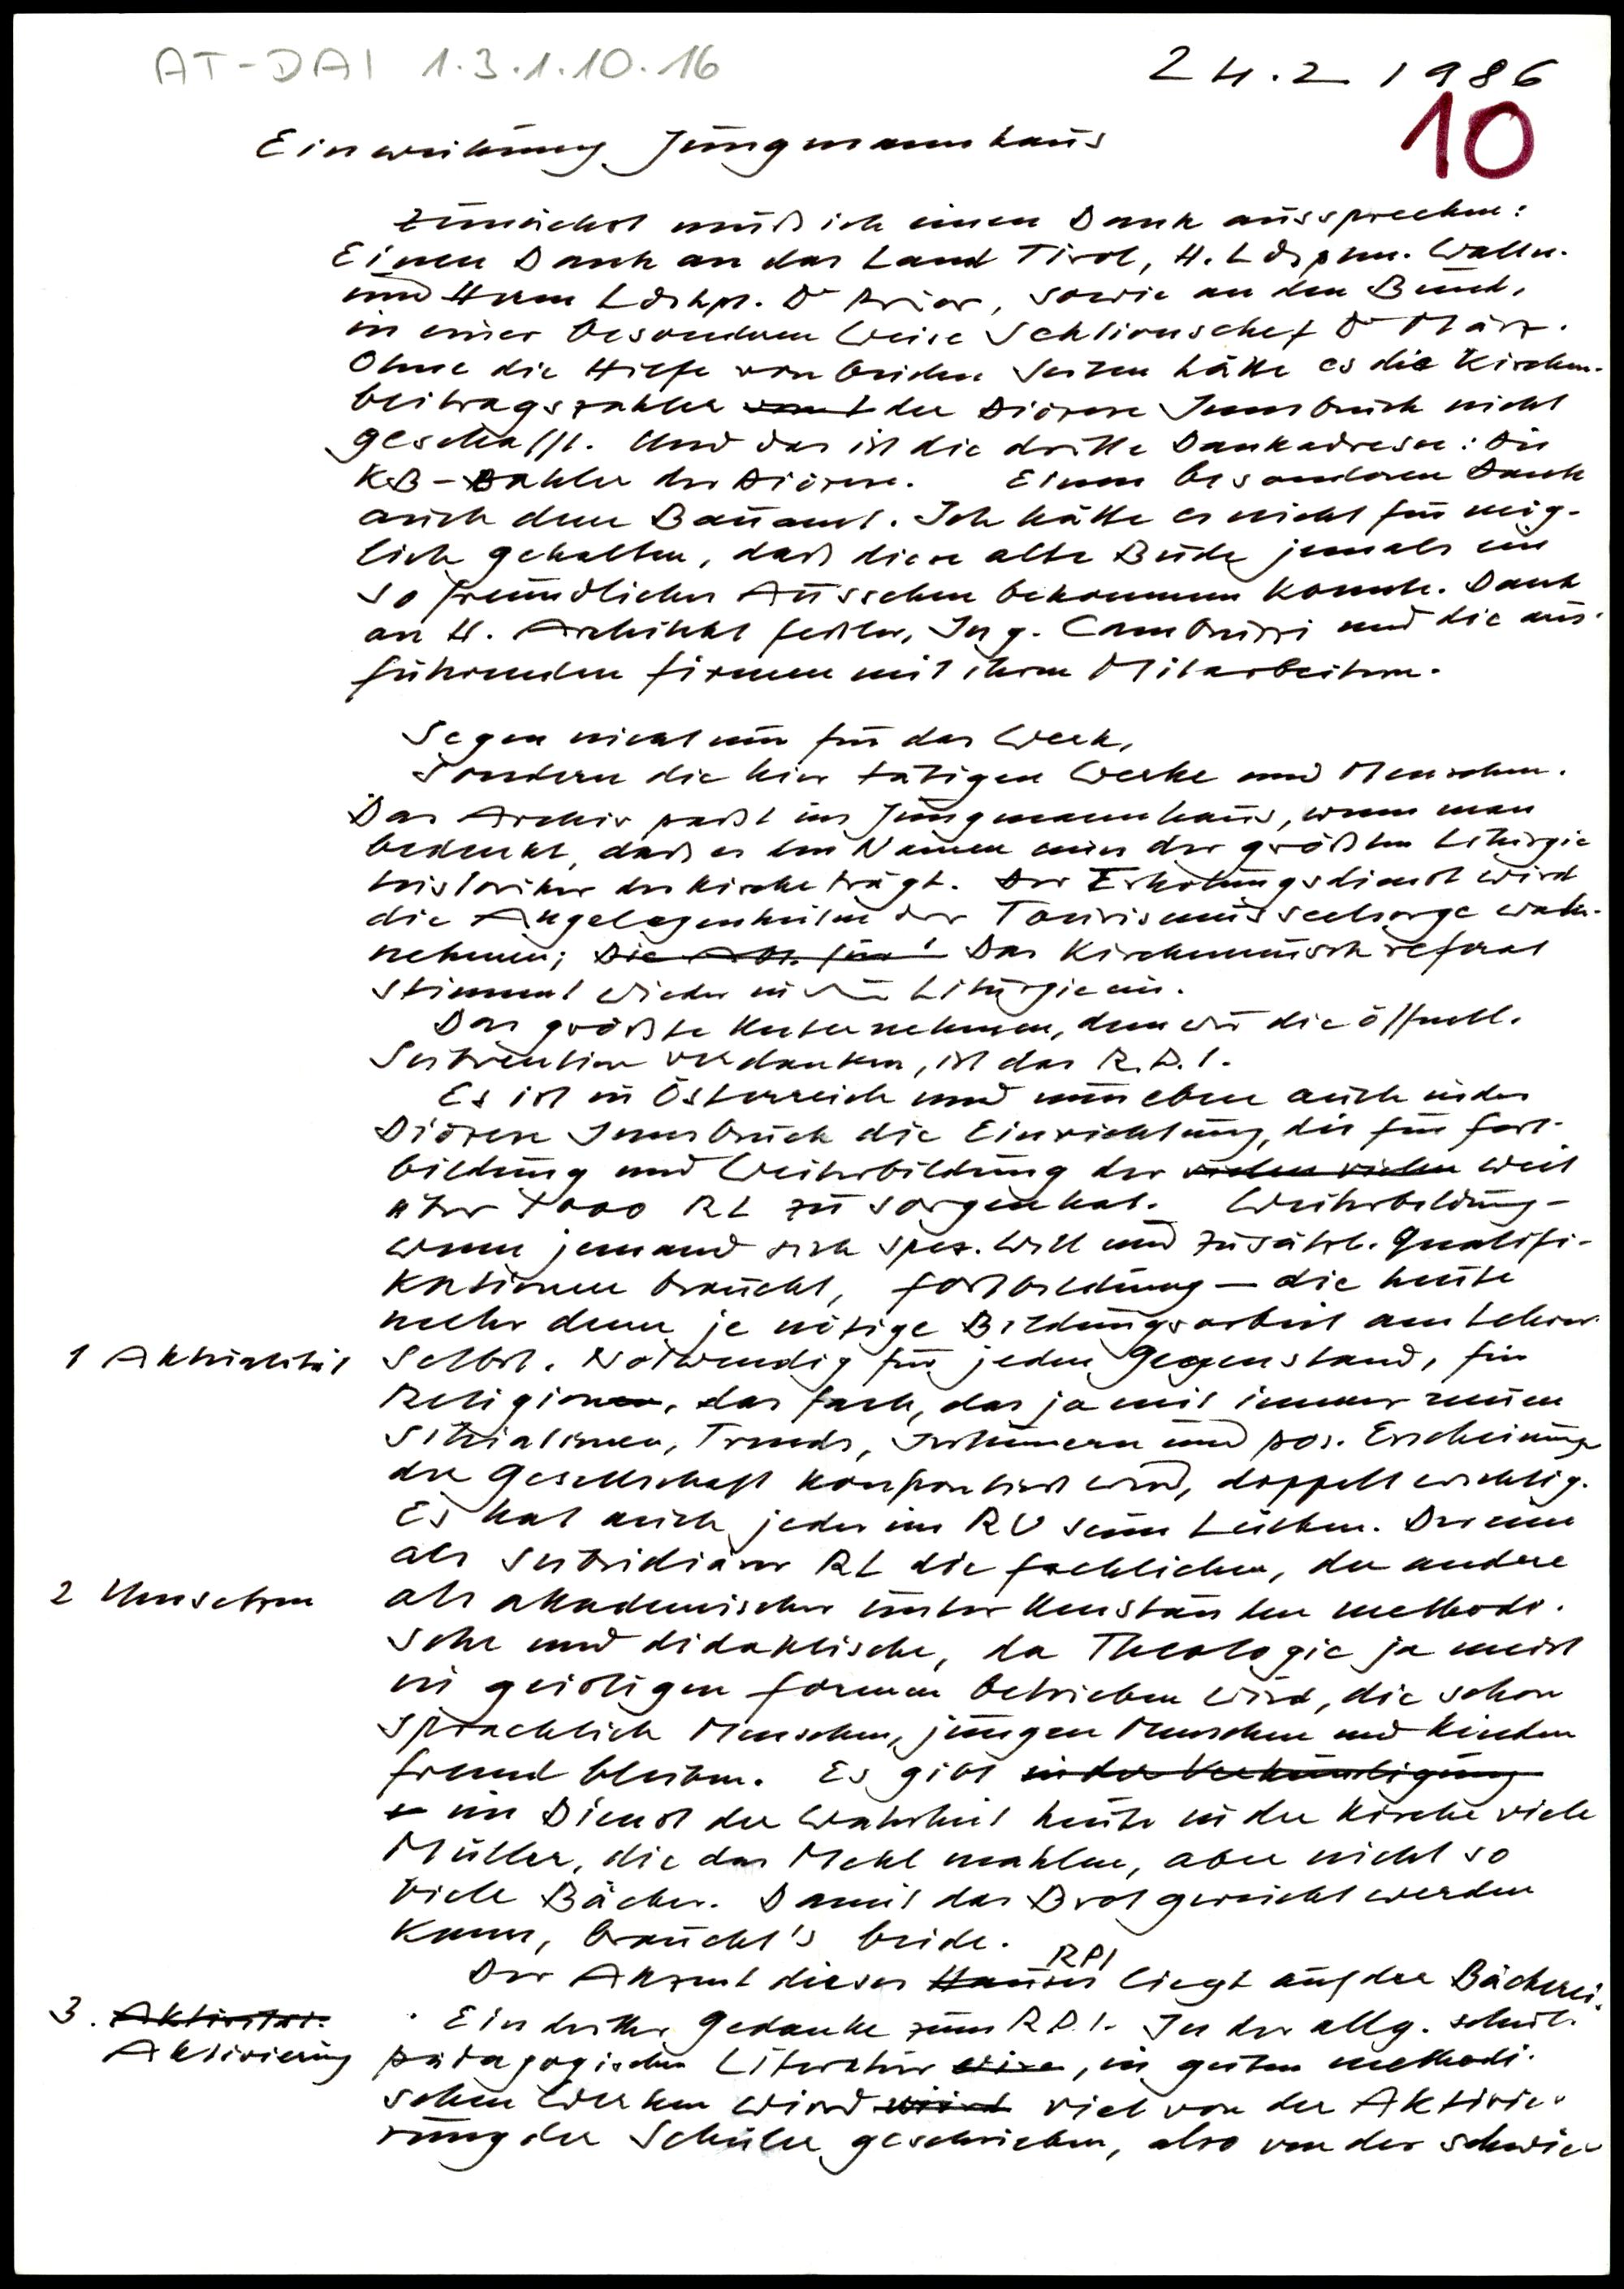 AT-DAI 1.3.1.10.16
24.2 1986
10
Einweihung Jungmannhaus
Zunächst muß ich einen Dank aussprechen:
Einen Dank an das Land Tirol, H. Ldshptm. Walln.
und Herrn Ldshpt. Dr Prior, sowie an den Bund,
in einer besonderen Weise Sektionschef Dr März.
Ohne die Hilfe von beiden Seiten hätte es die Kirchen-
beitragszahler der Diözese Innsbruck nicht
geschafft. Und das ist die dritte Dankadresse: Die
KB-Zahler der Diözese. Einen besonderen Dank
auch dem Bauamt. Ich hätte es nicht für mög-
lich gehalten, daß diese alte Bude jemals ein
so freundliches Aussehen bekommen konnte. Dank
an H. Architekt Feßler, Ing. und die aus-
führenden Firmen mit ihren Mitarbeitern.
Segen nicht nur für das Werk,
sondern die hier tätigen Werke und Menschen.
Das Archiv paßt ins Jungmannhaus, wenn man
bedenkt, daß es den Namen eines der größten Liturgie
historiker der Kirche trägt. Der Erholungsdienst wird
die Angelegenheiten der Tourismusseelsorge wahr-
nehmen; Die Abt. für Das Kirchenmusikreferat
stimmt wieder in die Liturgie ein.
Das größte Unternehmen, dem wir die öffentl.
Subvention verdanken, ist das R.P.I.
Es ist in Österreich und nun eben auch in der
Diözese Innsbruck die Einrichtung, die für Fort-
bildung und Weiterbildung der vielen vielen weit
über 1000 RL zu sorgen hat. Weiterbildung -
wenn jemand sich spez. will und zusätzl. Qualifi-
kationen braucht, Fortbildung - die heute
mehr denn je nötige Bildungsarbeit am Lehrer
1 Aktualität selbst. Notwendig für jeden Gegenstand, für
Religion, das Fach, das ja mit immer neuen
Situationen, Trends, Irrtümern und pos. Erscheinungen
der Gesellschaft konfrontiert wird, doppelt wichtig.
Es hat auch jeder im RU seine Lücken. Der eine
als subsidiärer RL die fachlichen, der andere
2 Umsetzen als akademischer unter Umständen methodi-
sche und didaktische, da Theologie ja meist
in geistigen Formen betrieben wird, die schon
sprachlich Menschen, jungen Menschen und Kindern
fremd bleiben. Es gibt in der Verkündigung
im Dienst der Wahrheit heute in der Kirche viele
Müller, die das Mehl mahlen, aber nicht so
viele Bäcker. Damit das Brot gereicht werden
kann, braucht's beide.
Der Akzent dieses Hauses RPI liegt auf der Bäckerei.
3. Aktivität. Ein dritter Gedanke zum R.P.I. In der allg. schul-
Aktivierung pädagogischen Literatur, in guten methodi-
schen Werken wird wird viel von der Aktivie-
rung der Schüler geschrieben, also von der schwie-